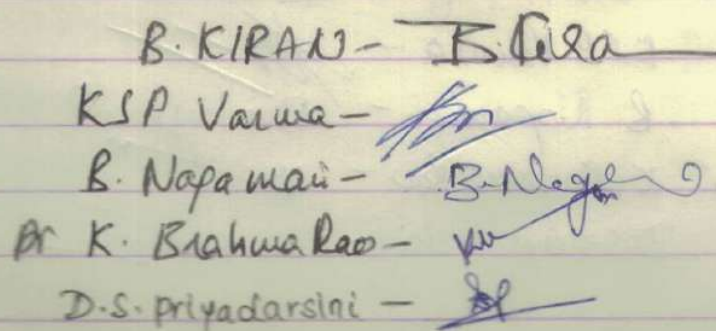 B. KIRAN - B. Kira
KSP Varma -
B. Nagamani - B. Nag
Dr K. Brahma Rao -
D.S. priyadarsini -